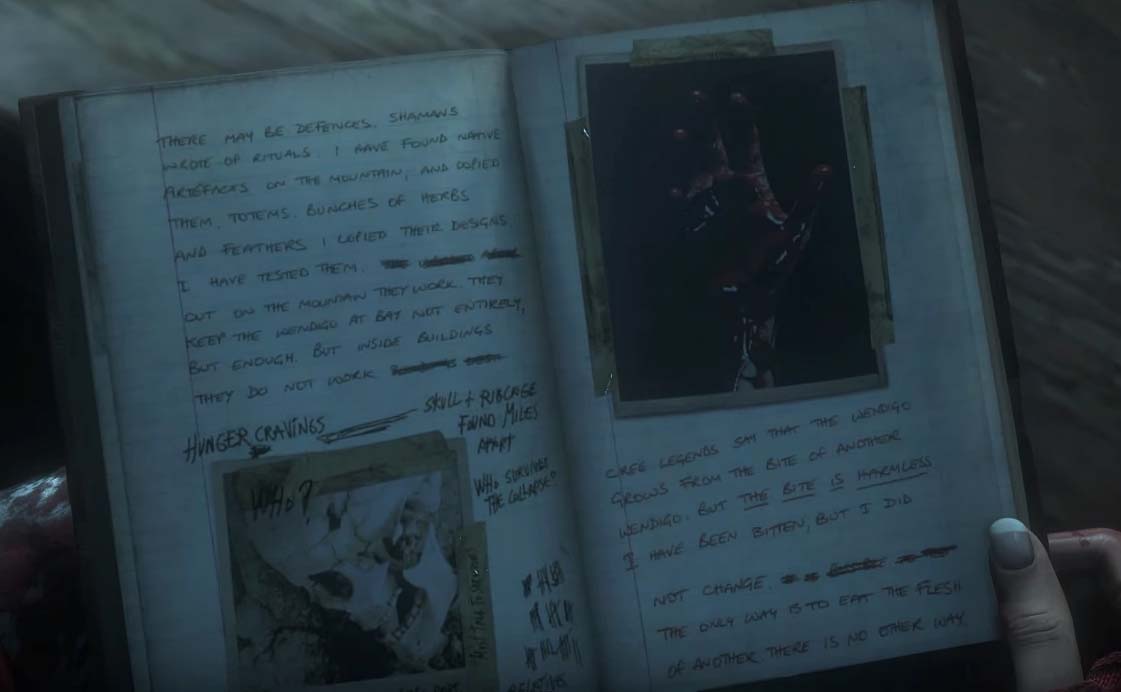 THERE MAY BE DEFENCES. SHAMANS
WROTE OF RITUALS. I HAVE FOUND NATIVE
ARTEFACTS ON THE MOUNTAIN, AND COPIED
THEM. TOTEMS. BUNCHES OF HERBS
AND FEATHERS I COPIED THEIR DESIGNS.
I HAVE TESTED THEM.
OUT ON THE MOUNTAIN THEY WORK. THEY
KEEP THE WENDIGO AT BAY NOT ENTIRELY,
BUT ENOUGH. BUT INSIDE BUILDINGS
THEY DO NOT WORK
HUNGER CRAVINGS
SKULL + RIBCAGE
FOUND MILES
APART
WHO SURVIVED
THE COLLAPSE?
WHO?
RELATIVE
CREE LEGENDS SAY THAT THE WENDIGO
GROWS FROM THE BITE OF ANOTHER
WENDIGO. BUT THE BITE IS HARMLESS
I HAVE BEEN BITTEN, BUT I DID
NOT CHANGE.
THE ONLY WAY IS TO EAT THE FLESH
OF ANOTHER THERE IS NO OTHER WAY.